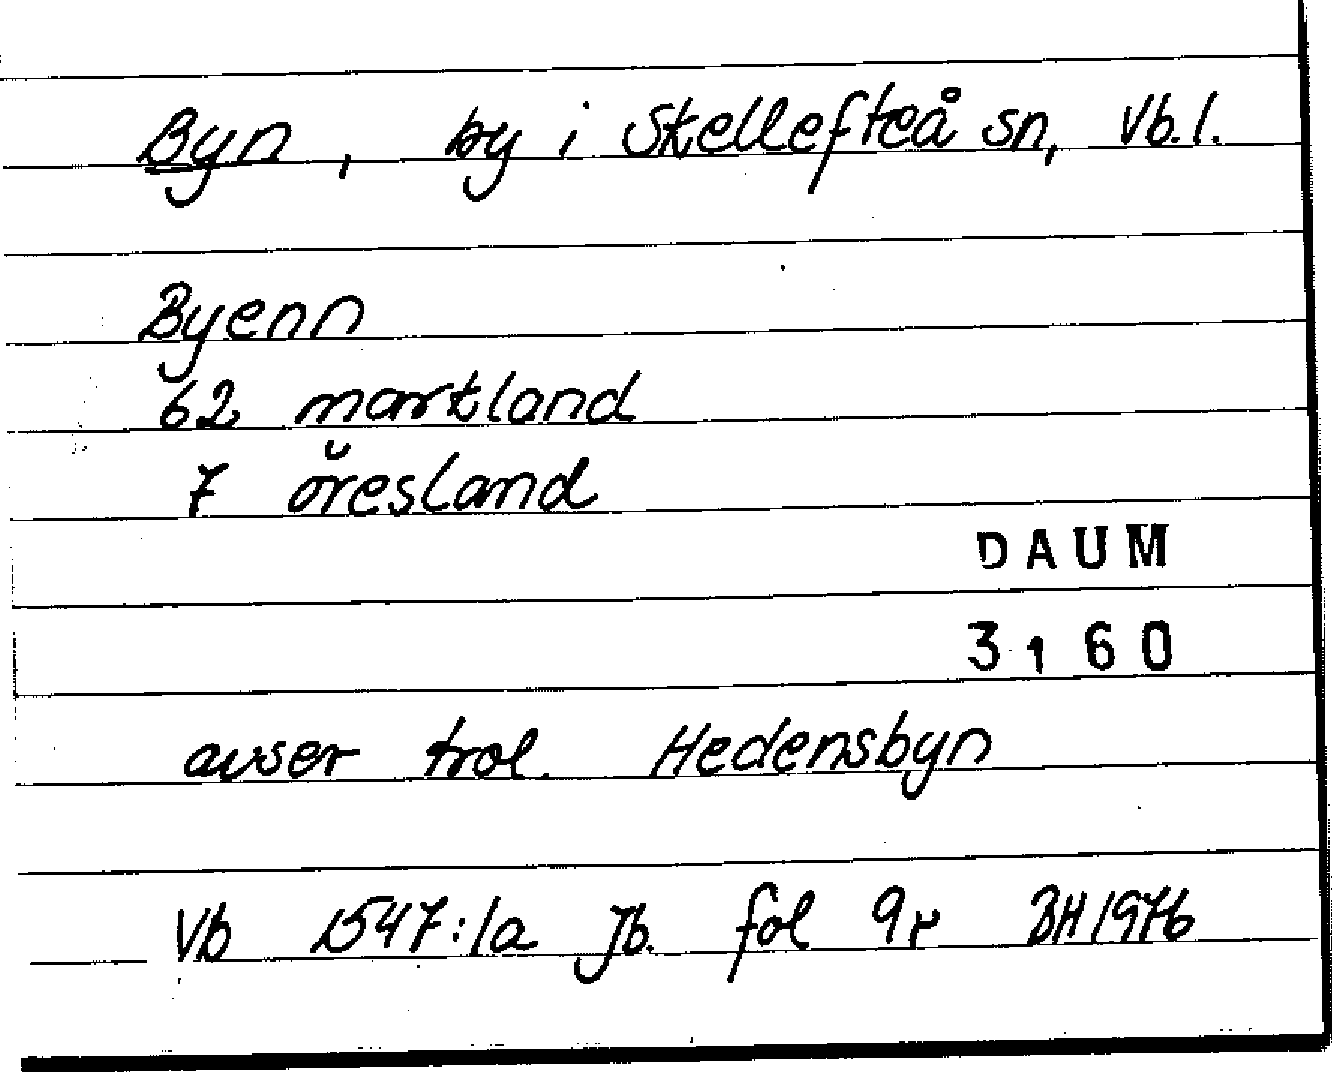 Byn, by i Skellefteå sn, Vb.l.
Byenn
62 markland
7 öresland
DAUM
3160
avser trol. Hedensbyn
Vb 1547:1a Jb. fol 9r BH 1976